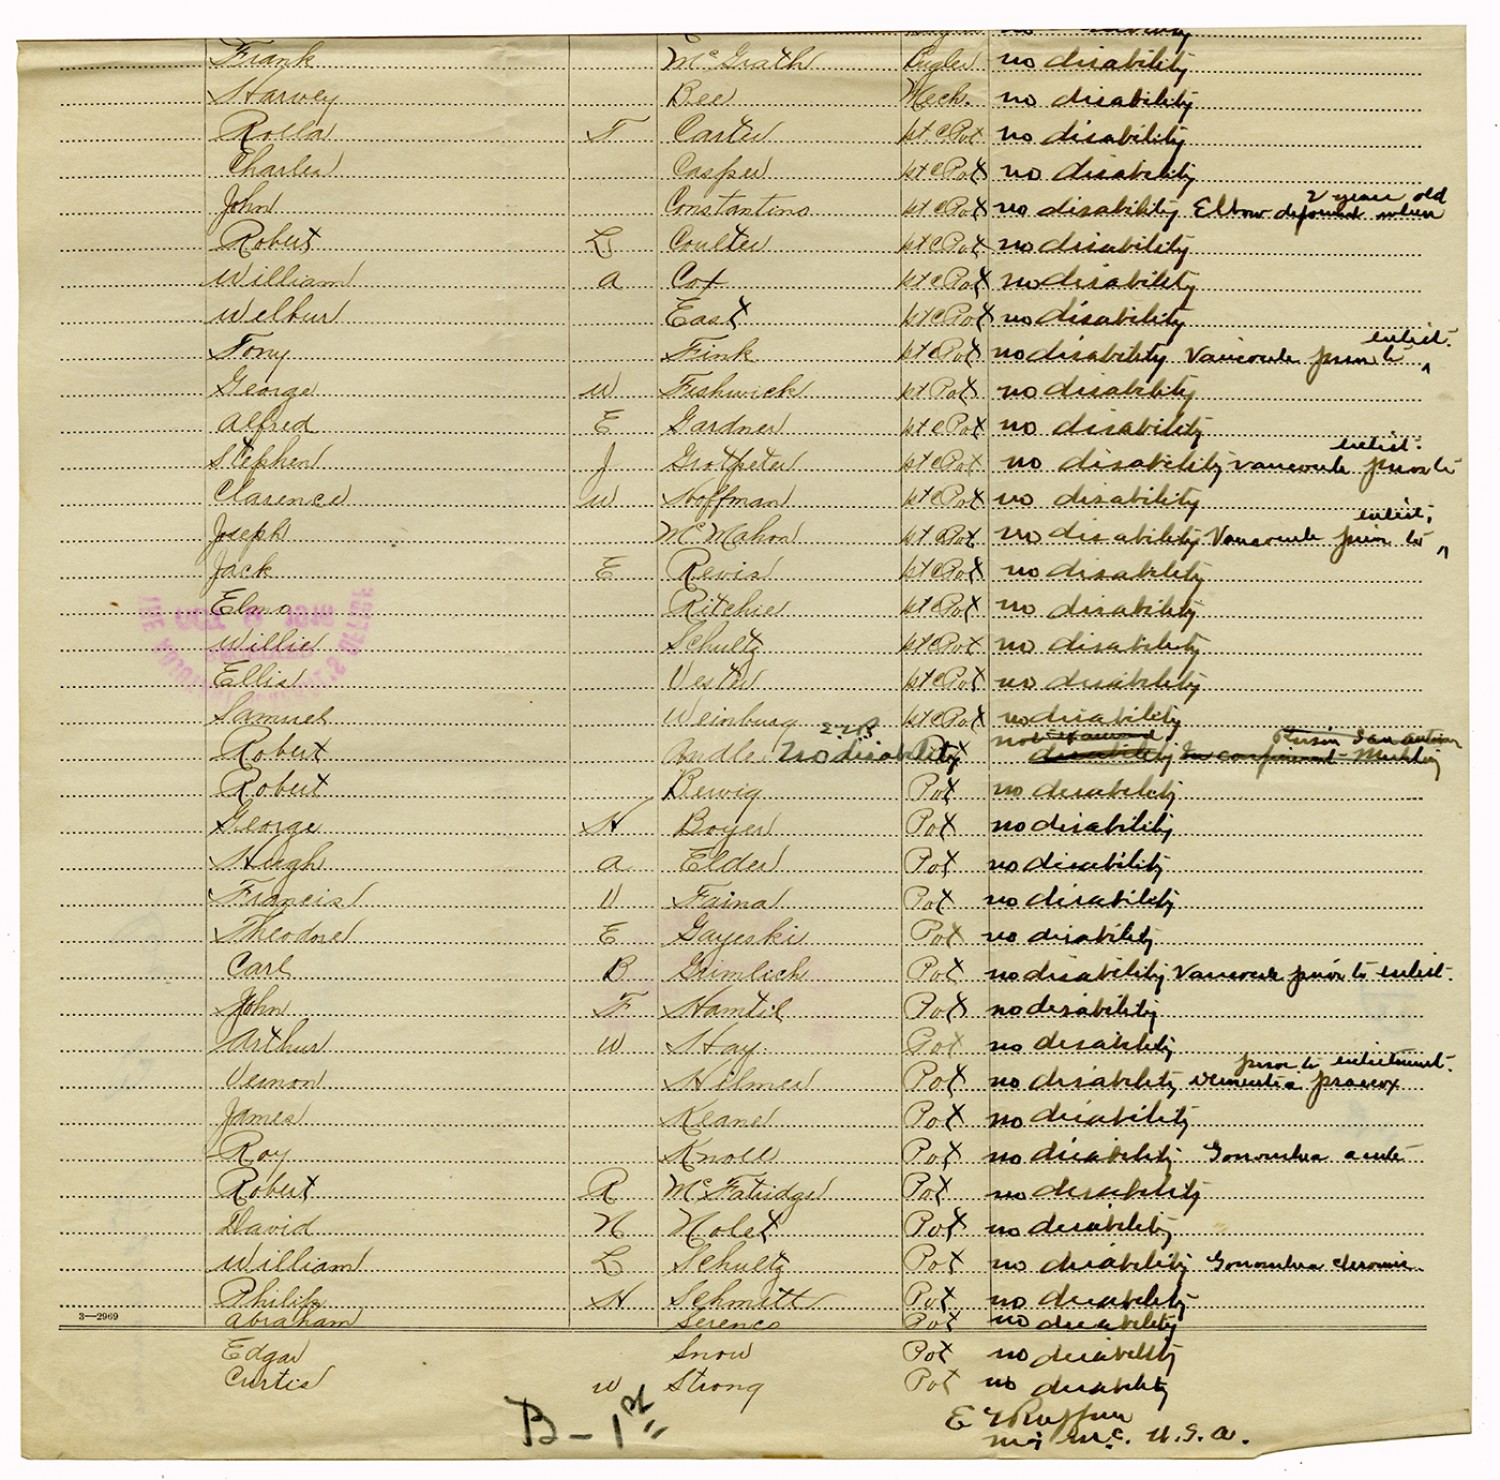 Frank McGrath Bugler no disability
Harvey Bee Mech. no disability
Rolla T Carter 1st C Pvt no disability
Charles Casper 1st C Pvt no disability
2 years old
John Constantino 1st C Pvt no disability Elbow deformed when
Robert L Coulter 1st C Pvt no disability
William A Cox 1st C Pvt no disability
Welbur East 1st C Pvt no disability
enlist.
Tony Fink 1st C Pvt no disability Varicocele prior to ^
George W Fishwick 1st C Pvt no disability
Alfred E Gardner 1st C Pvt no disability
enlist.
Stephen J Grotpeter 1st C Pvt no disability varicocele prior to
Clarence W Hoffman 1st C Pvt no disability
enlist.
Joseph McMahon 1st C Pvt no disability Varicocele prior to ^
Jack E Revis 1st C Pvt no disability
Elmo Ritchie 1st C Pvt no disability
Willie Schultz 1st C Pvt no disability
Ellis Vester 1st C Pvt no disability
Samuel Weinburg 1st C Pvt no disability
Robert Andle No disability Pvt not examined disability In confinement
Robert Bewig Pvt no disability
George H Boyer Pvt no disability
Hugh A Elder Pvt no disability
Francis V Faina Pvt no disability
Theodore E Gayeski Pvt no disability
Carl B Grimlich Pvt no disability Varicocele prior to enlist.
John F Hamtil Pvt no disability
Arthur W Hay Pvt no disability
prior to enlistment.
Vernon Hilmer Pvt no disability Dementia praecox
James Keane Pvt no disability
Roy Knoll Pvt no disability Gonorrhea acute
Robert R McFatridge Pvt no disability
David N Nolet Pvt no disability
William L Schultz Pvt no disability Gonorrhea chronic
Philip H Schmitt Pvt no disability
3—2969
Abraham Serenco Pvt no disability
Edgar Snow Pvt no disability
Curtis W Strong Pvt no disability
B - 1st
E Y Ruffin
Mj M.C. U.S.A.